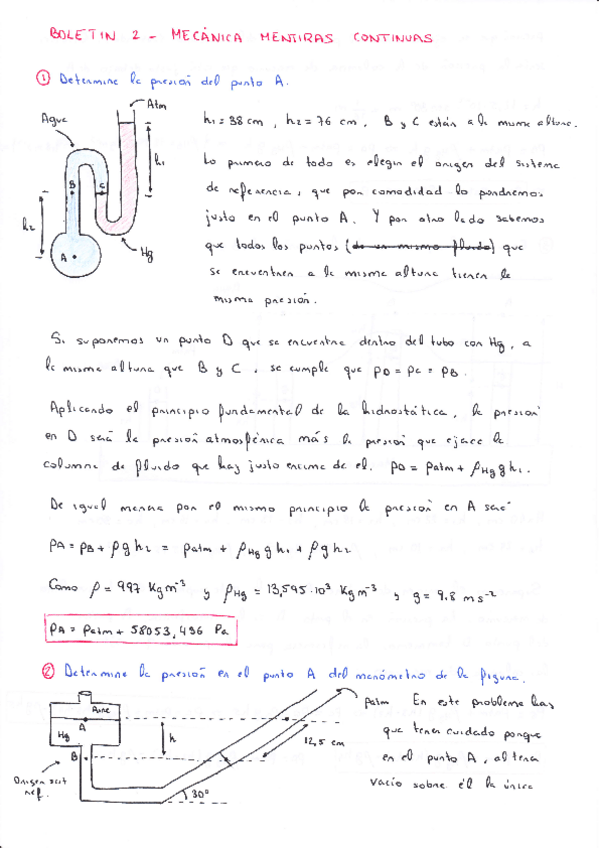 BOLETIN 2 - MECÁNICA MENTIRAS CONTINUAS
① Determine la presión del punto A.
Atm
Agua
h₁
B
C
h₂
A
Hg
h₁ = 38 cm, h₂ = 76 cm. B y C están a la misma altura.
Lo primero de todo es elegir el origen del sistema
de referencia, que por comodidad lo pondremos
justo en el punto A. Y por otro lado sabemos
que todos los puntos (de un mismo fluido) que
se encuentren a la misma altura tienen la
misma presión.
Si suponemos un punto D que se encuentra dentro del tubo con Hg, a
la misma altura que B y C, se cumple que pD = pC = pB.
Aplicando el principio fundamental de la hidrostática, la presión
en D será la presión atmosférica más la presión que ejerce la
columna de fluido que hay justo encima de el. pD = patm + ρHg g h₁.
De igual manera por el mismo principio la presión en A será
pA = pB + ρ g h₂ = patm + ρHg g h₁ + ρ g h₂
Como ρ = 997 Kg m⁻³ y ρHg = 13,595·10³ Kg m⁻³ y g = 9.8 m s⁻²
pA = patm + 58053,496 Pa
② Determine la presión en el punto A del manómetro de la figura.
Aire
A
Hg
B
h
12,5 cm
30°
Origen sist
ref.
patm
En este problema hay
que tener cuidado porque
en el punto A, al tener
vacío sobre él la única